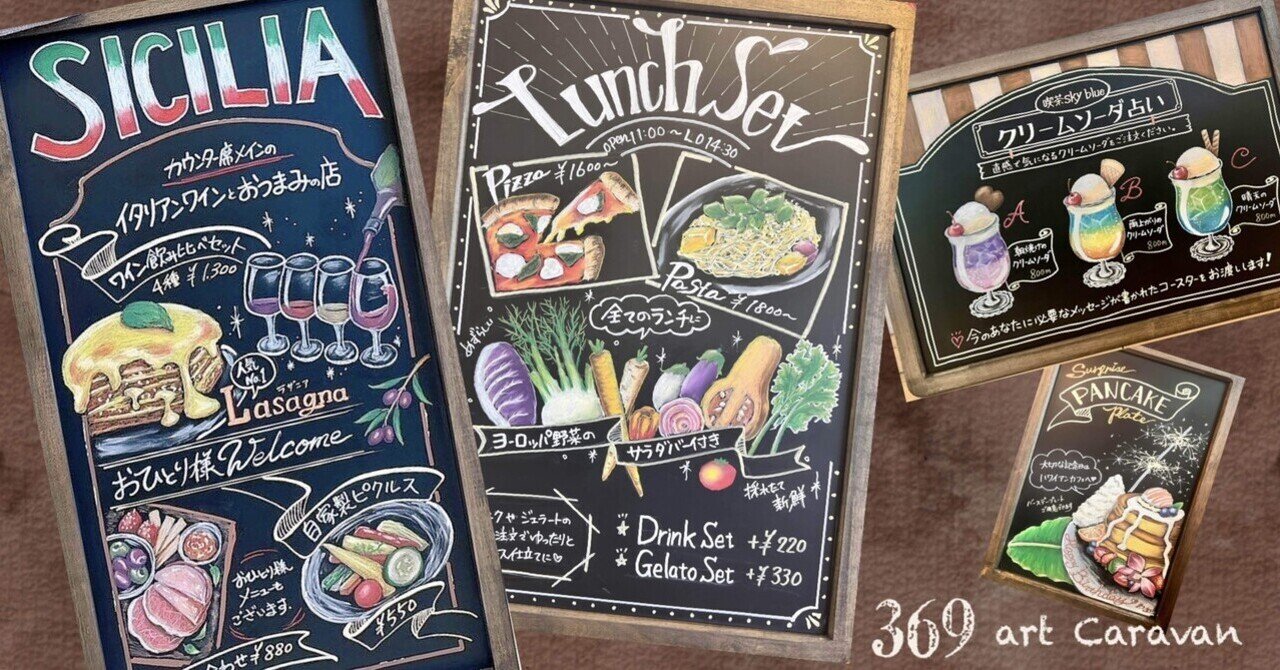 SICILIA
カウンター席メインの
イタリアンワインとおつまみの店
ワイン飲み比べセット
4種 ¥1.300
人気
No.1
ラザニア
Lasagna
おひとり様Welcome
自家製ピクルス
¥550
おひとり様
メニューも
ございます。
合わせ¥880
Lunch Set
open.11:00〜L.O14:30
Pizza ¥1600〜
Pasta ¥1800〜
全てのランチに
めずらしい
ヨーロッパ野菜の
サラダバー付き
採れたて
新鮮
クやジェラートの
注文でゆったりと
ス仕立てに♡
Drink Set +¥220
Gelato Set +¥330
喫茶sky blue
クリームソーダ占い
直感で気になるクリームソーダをご注文ください。
A
朝焼けの
クリームソーダ
800円
B
雨上がりの
クリームソーダ
800円
C
晴天の
クリームソーダ
800円
♡今のあなたに必要なメッセージが書かれたコースターをお渡しします!
Surprise
PANCAKE
Plate
大切な記念日は
ハワイアンカフェへ♡
369 art Caravan